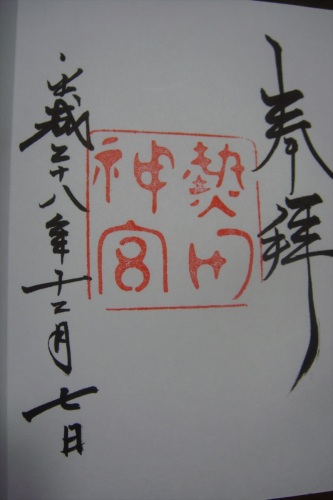 奉拝
熱田
神宮
平成二十八年十二月七日